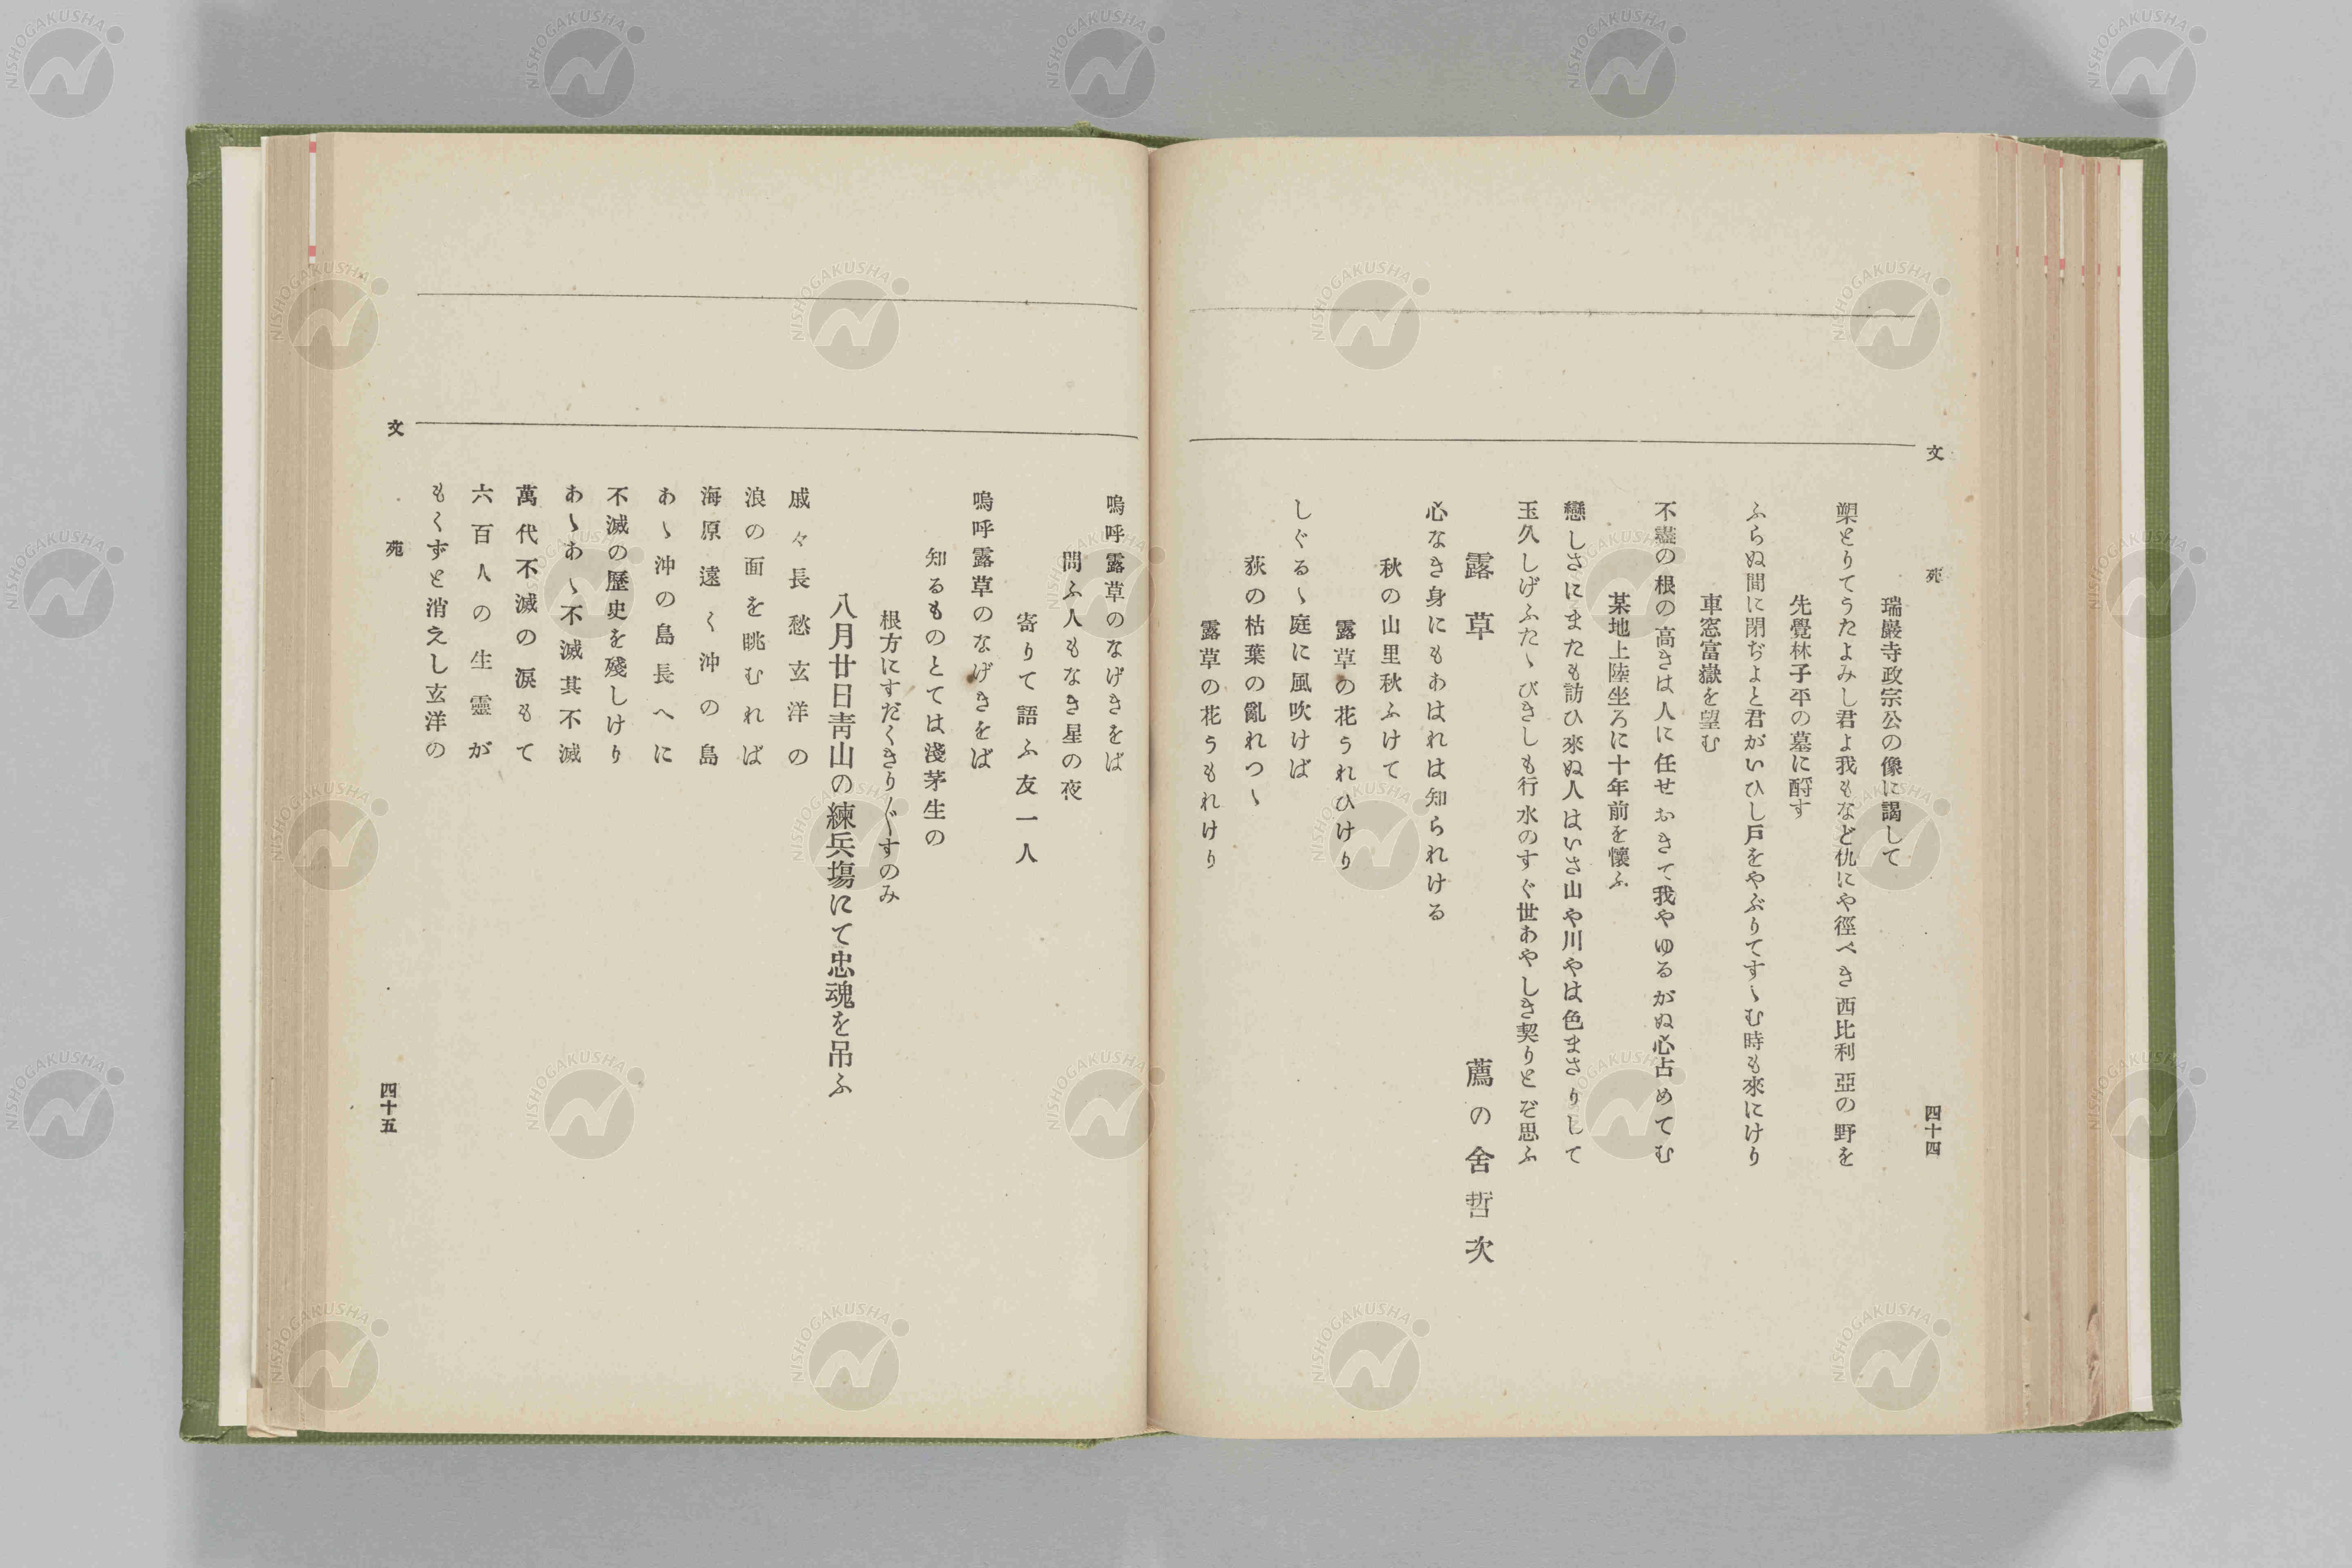 文苑
四十四
瑞巖寺政宗公の像に謁して
槊とりてうたよみし君よ我もなど仇にや徑べき西比利亞の野を
先覺林子平の墓に酹す
ふらぬ間に閉ぢよと君がいひし戸をやぶりてすゝむ時も來にけり
車窓富嶽を望む
不盡の根の高きは人に任せおきて我やゆるがぬ心占めてむ
某地上陸坐ろに十年前を懷ふ
戀しさにまたも訪ひ來ぬ人はいさ山や川やは色まさりして
玉久しげふたゝびきしも行水のすぐ世あやしき契りとぞ思ふ
露草　薦の舍哲次
心なき身にもあはれは知られける
秋の山里秋ふけて
露草の花うれひけり
しぐるゝ庭に風吹けば
荻の枯葉の亂れつゝ
露草の花うもれけり
嗚呼露草のなげきをば
問ふ人もなき星の夜
寄りて語ふ友一人
嗚呼露草のなげきをば
知るものとては淺茅生の
根方にすだくきり〴〵すのみ
八月廿日靑山の練兵塲にて忠魂を吊ふ
戚々長愁玄洋の
浪の面を眺むれば
海原遠く沖の島
あゝ沖の島長へに
不滅の歷史を殘しけり
あゝあゝ不滅其不滅
萬代不滅の淚もて
六百人の生靈が
もくずと消えし玄洋の
文苑
四十五
NISHOGAKUSHA